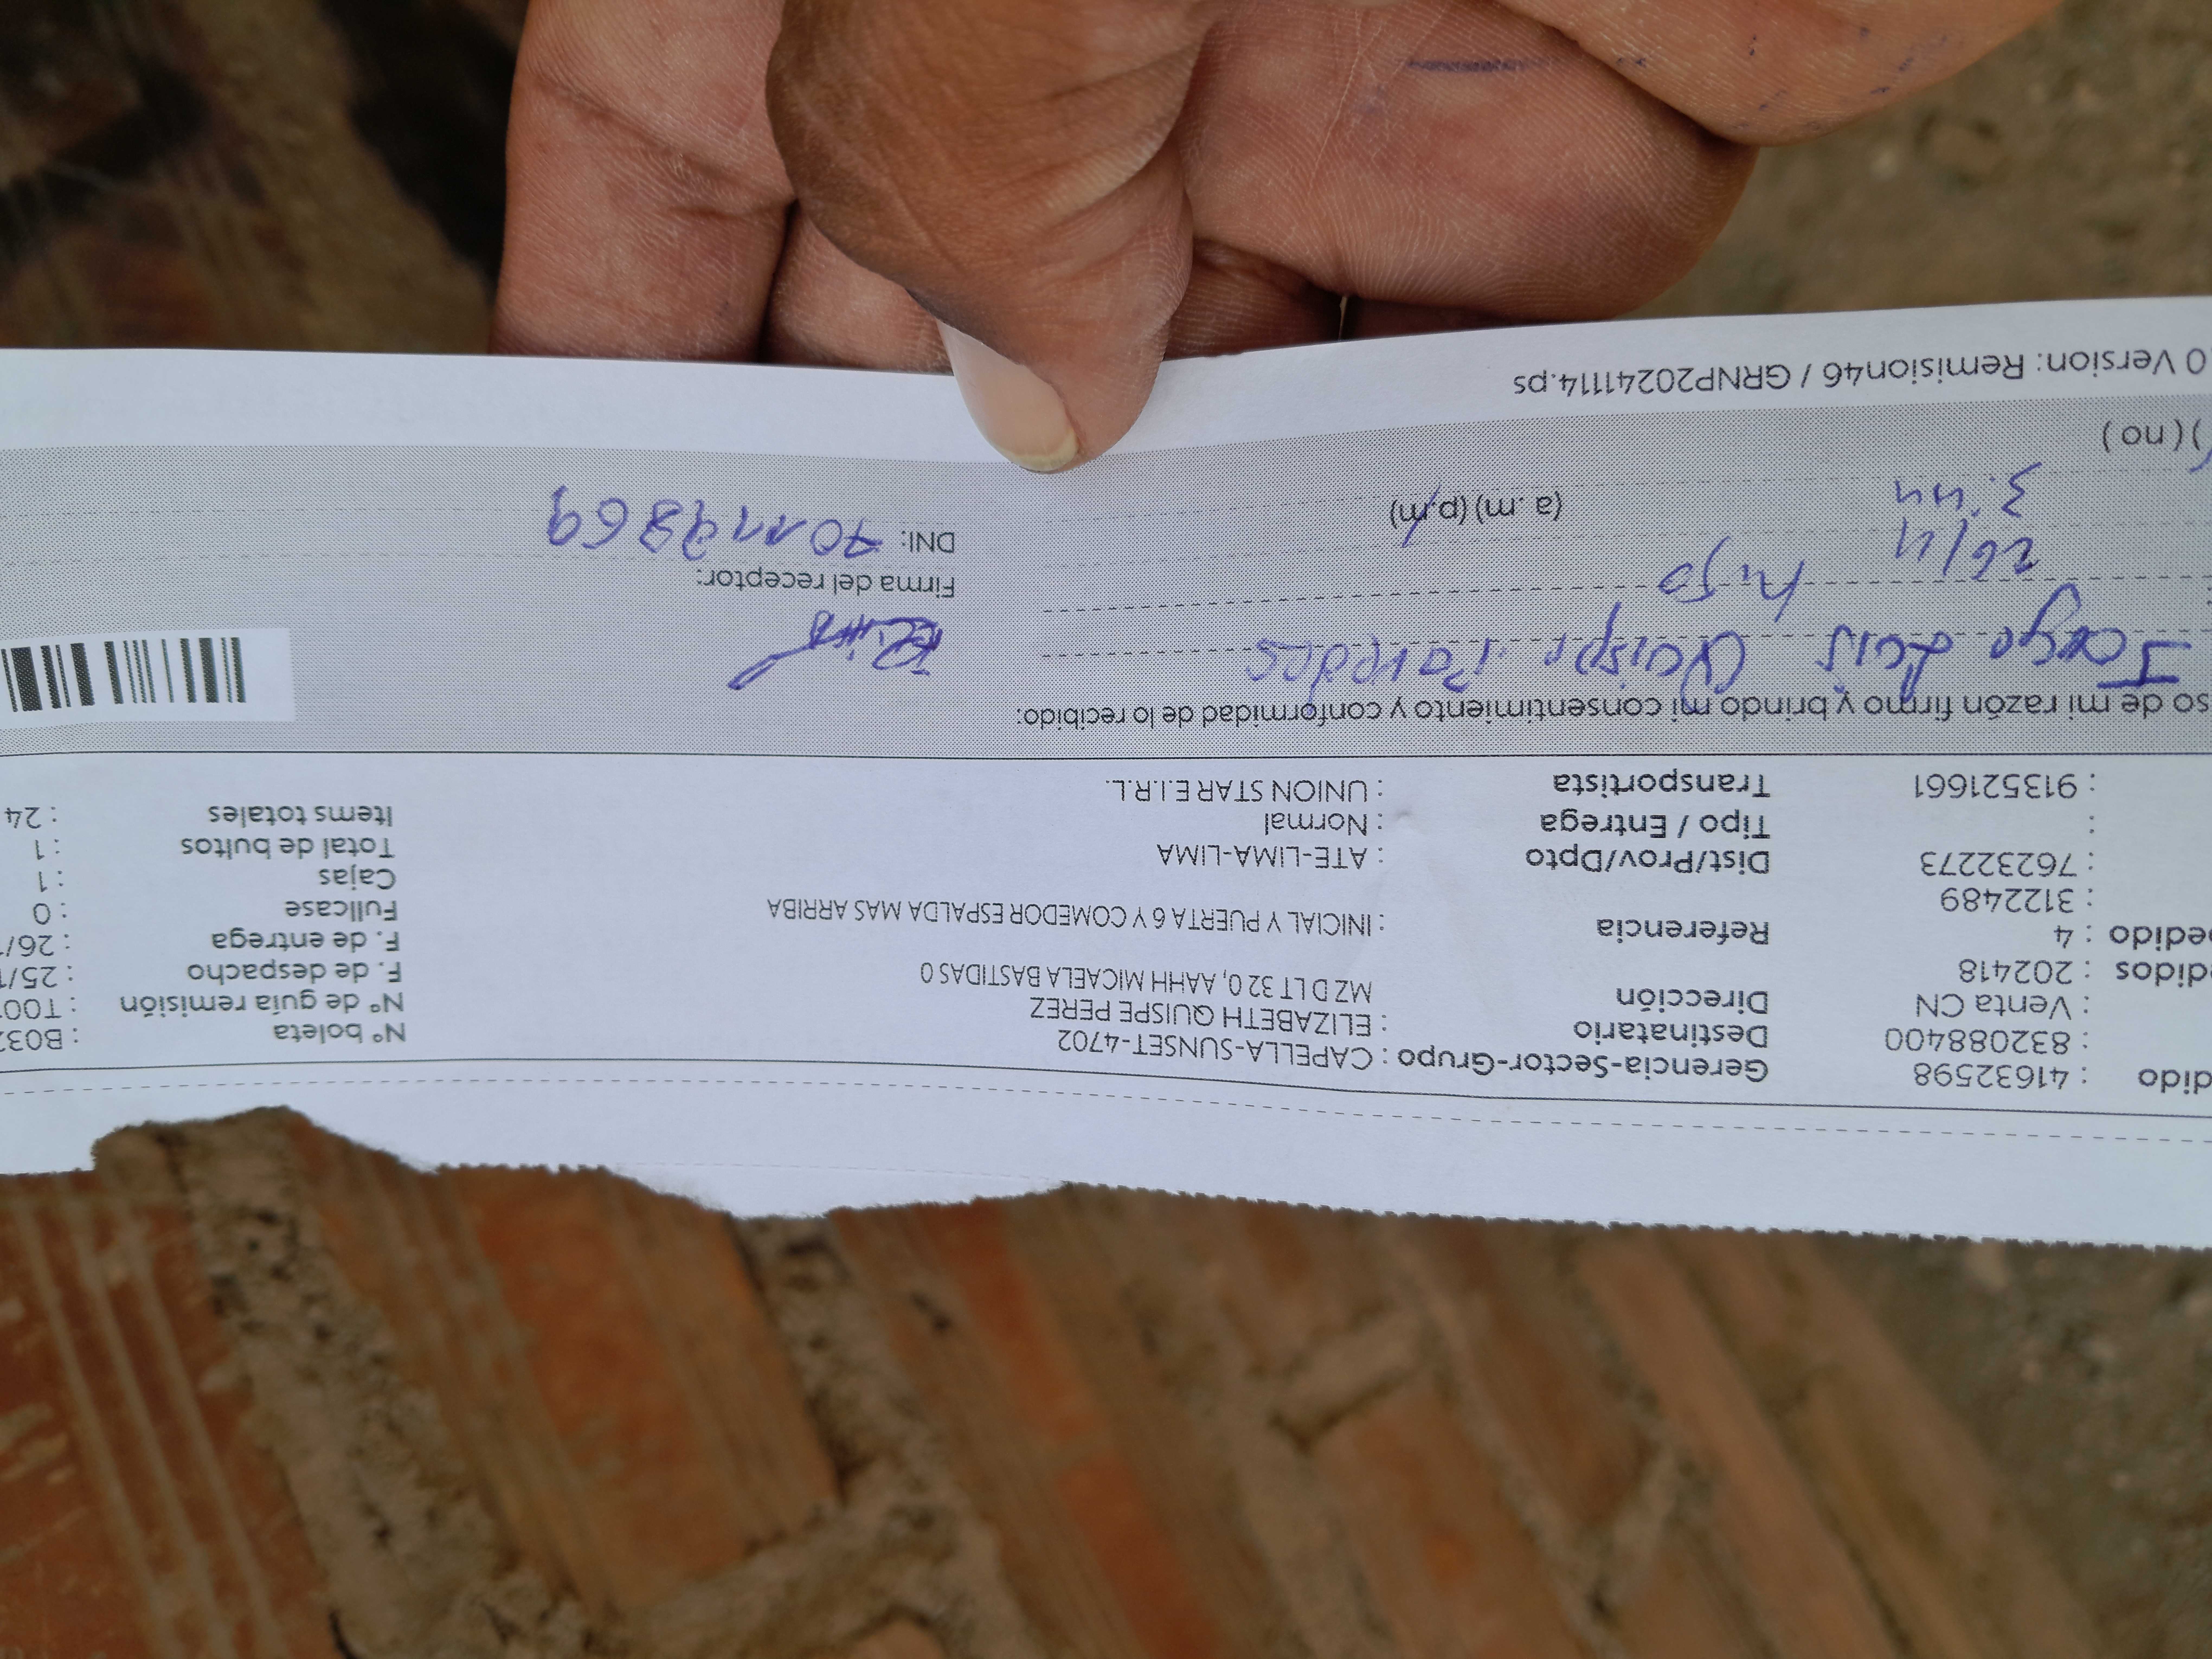 dido : 41632598 Gerencia-Sector-Grupo : CAPELLA-SUNSET-4702 N° boleta : B032
: 832088400 Destinatario : ELIZABETH QUISPE PEREZ N° de guía remisión : T00
: Venta CN Dirección MZ D LT 32 0, AAHH MICAELA BASTIDAS 0 F. de despacho : 25/1
didos : 202418 F. de entrega : 26/
edido : 4 Referencia : INICIAL Y PUERTA 6 Y COMEDOR ESPALDA MAS ARRIBA Fullcase : 0
3122489 Cajas : 1
: 76232273 Dist/Prov/Dpto : ATE-LIMA-LIMA Total de bultos : 1
: Tipo / Entrega : Normal Items totales : 24
: 913521661 Transportista : UNION STAR E.I.R.L.
so de mi razón firmo y brindo mi consentimiento y conformidad de lo recibido:
Luis Quispe Paredes
hijo Firma del receptor:
26/11 DNI: 70119869
3:44 (a.m) (p.m)
) (no)
.0 Version: Remision46 / GRNP20241114.ps